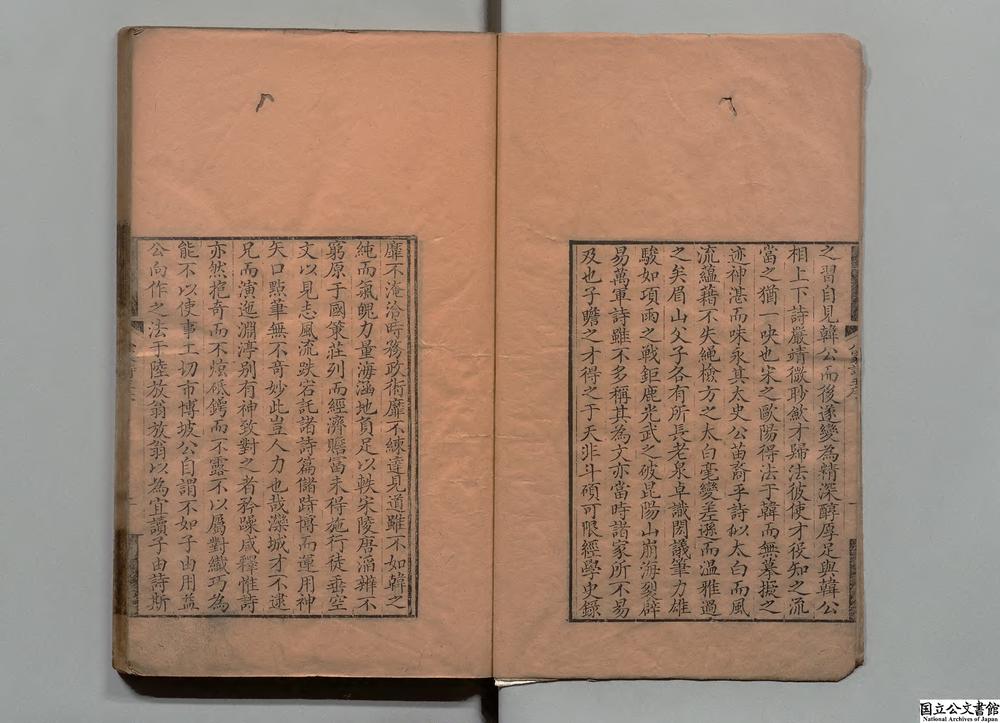 之習自見韓公而後遂變為精深醇厚足與韓公
相上下詩嚴靖微眇斂才歸法彼使才役知之流
當之猶一吷也宋之歐陽得法于韓而無摹擬之
迹神湛而味永其太史公苗裔乎詩似太白而風
流蘊藉不失繩檢方之太白毫變差遜而溫雅過
之矣眉山父子各有所長老泉卓識閎議筆力雄
駿如項羽之戰鉅鹿光武之破毘陽山崩海裂辟
易萬軍詩雖不多稱其為文亦當時諸家所不易
及也子瞻之才得之于天非斗碩可限經學史錄
靡不淹洽時務政術靡不練達見道雖不如韓之
純而氣魄力量海涵地負足以軼宋陵唐滔辨不
窮原于國策莊列而經濟贍富未得施行徒垂空
文以見志風流跌宕託諸詩篇儲跱博而運用神
矢口點筆無不奇妙此豈人力也哉灤城才不逮
兄而演迤淵渟別有神致對之者矜躁咸釋惟詩
亦然抱奇而不炫砥鍔而不露不以屬對纖巧為
能不以使事工切市博坡公自謂不如子由用益
公向作之法于陸放翁放翁以為宜讀子由詩斯
国立公文書館
National Archives of Japan